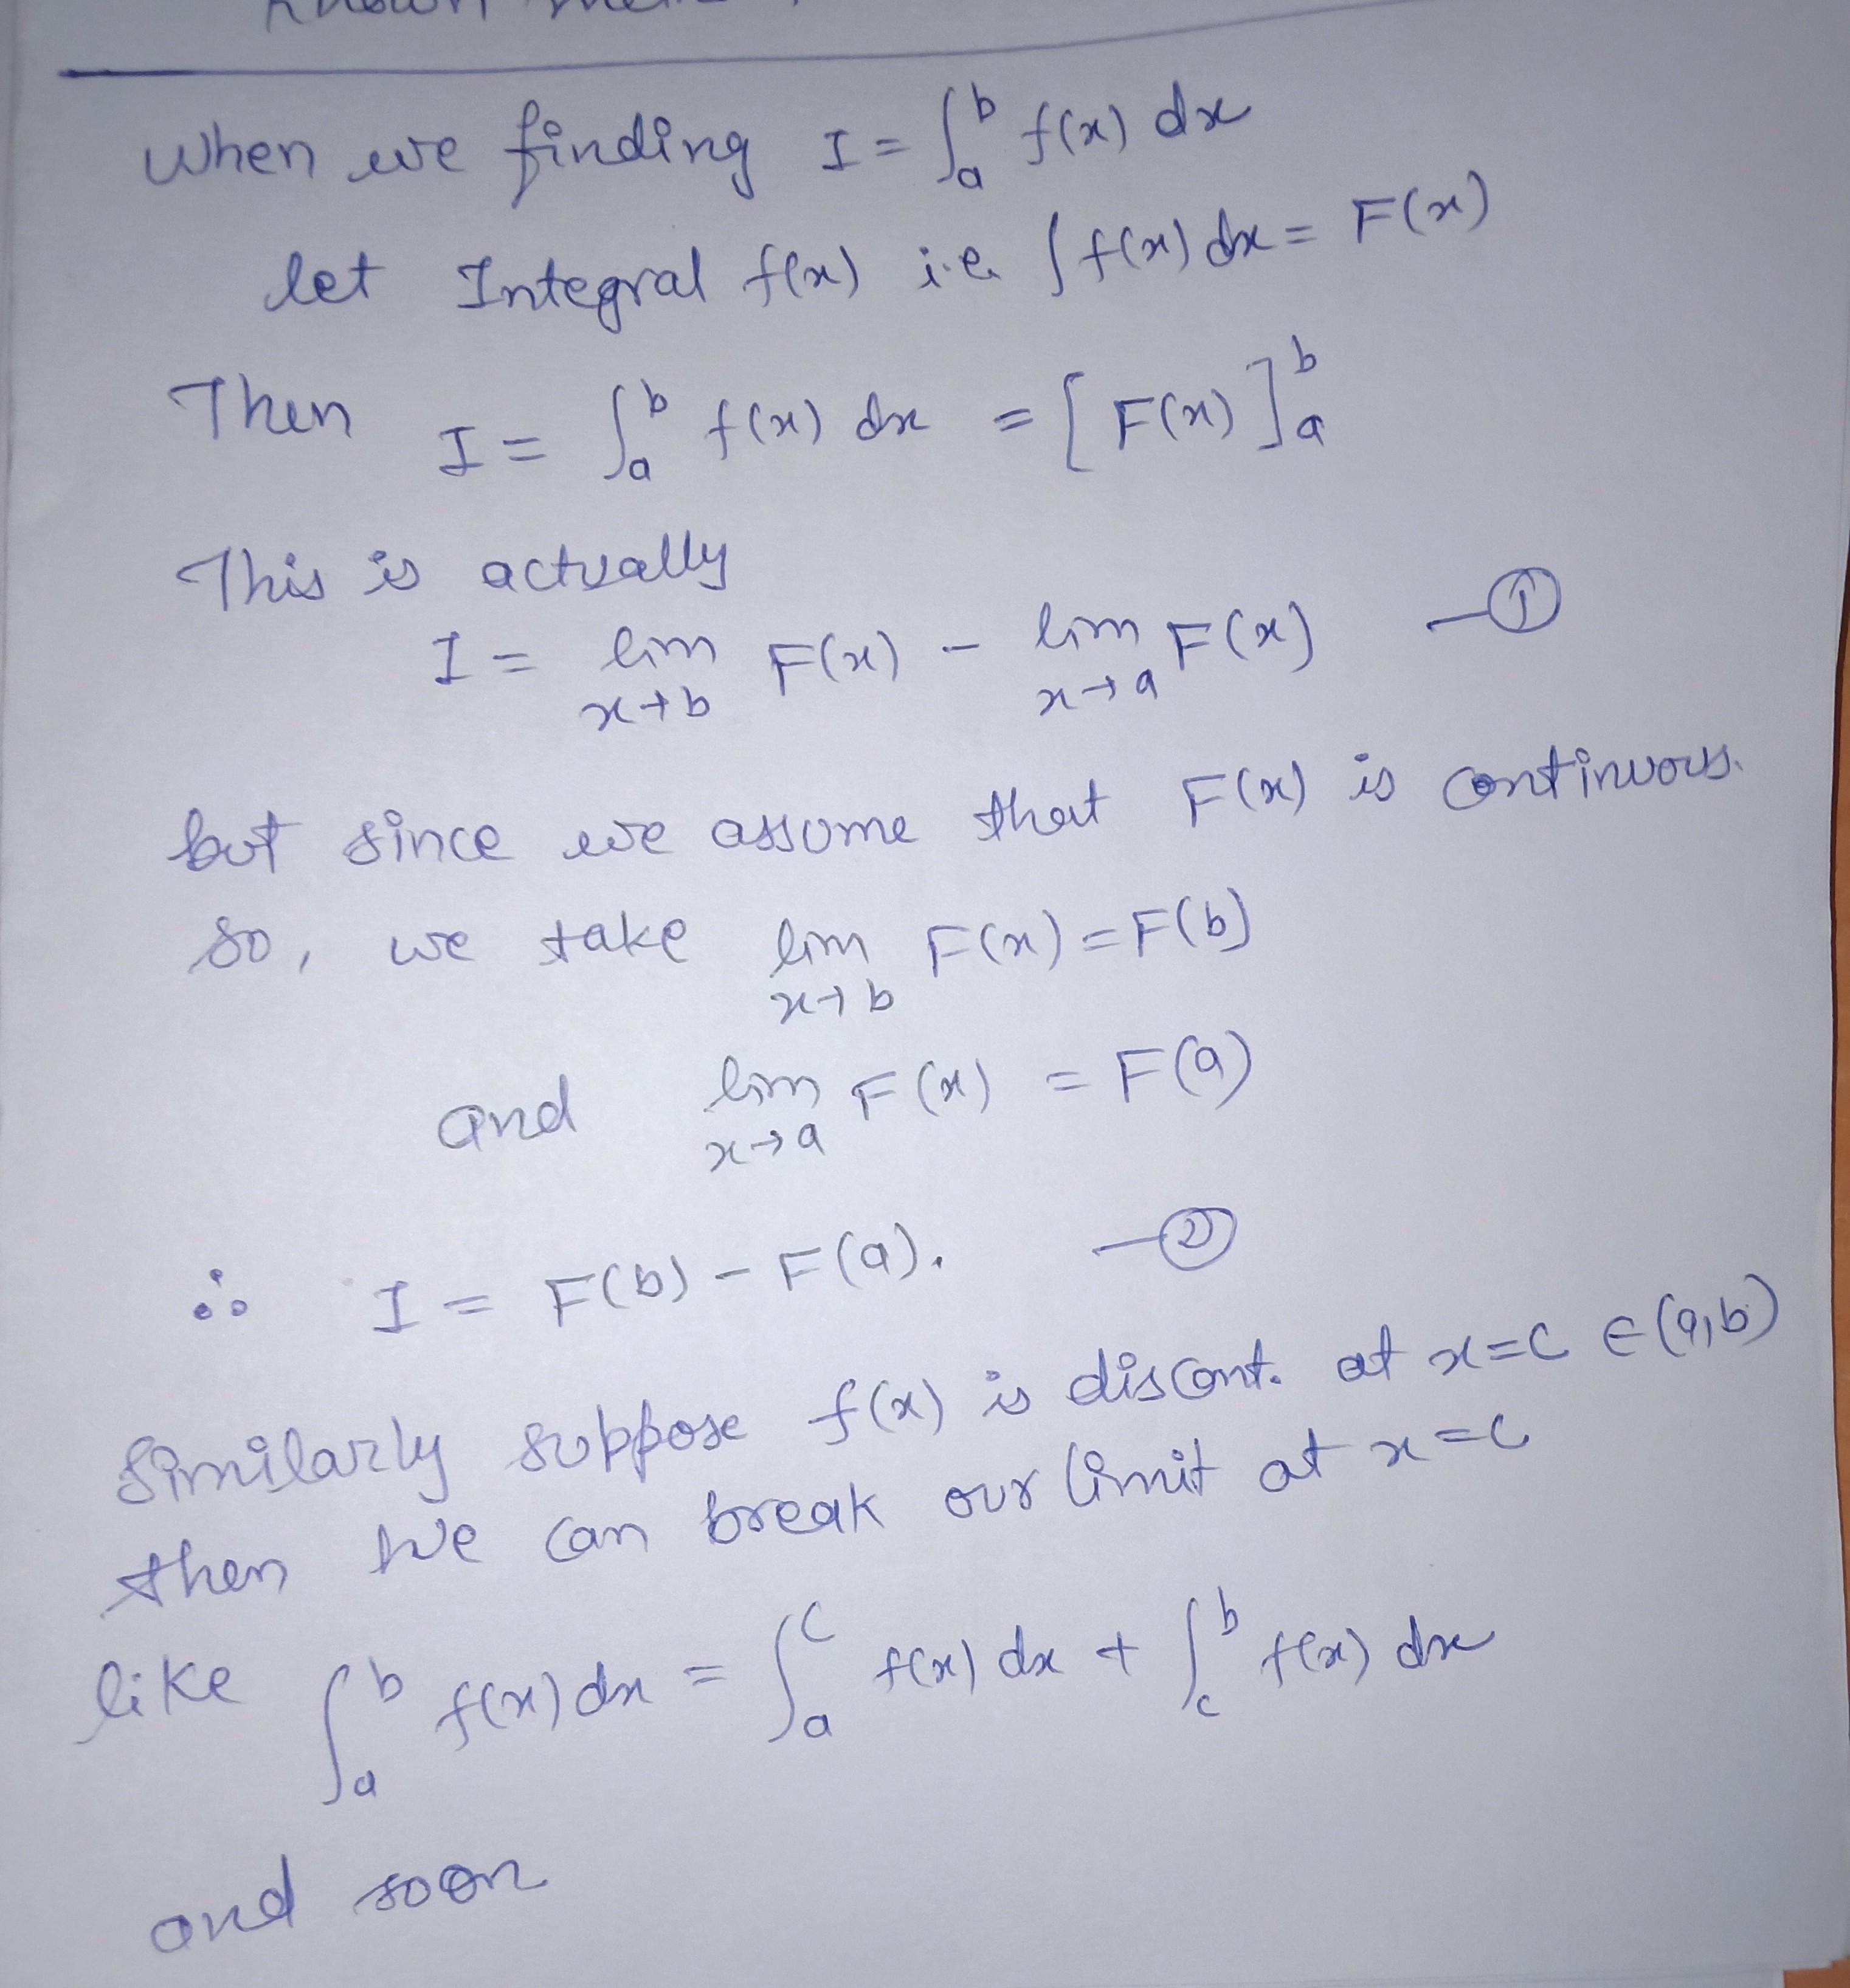 when we finding I = ∫_a^b f(x) dx
let Integral f(x) i.e. ∫ f(x) dx = F(x)
Then I = ∫_a^b f(x) dx = [F(x)]_a^b
This is actually
I = lim_{x→b} F(x) - lim_{x→a} F(x) —①
but since we assume that F(x) is continuous.
so, we take lim_{x→b} F(x) = F(b)
and lim_{x→a} F(x) = F(a)
∴ I = F(b) - F(a). —②
Similarly suppose f(x) is discont. at x=c ∈ (a,b)
then we can break our limit at x=c
like ∫_a^b f(x) dx = ∫_a^c f(x) dx + ∫_c^b f(x) dx
and soon